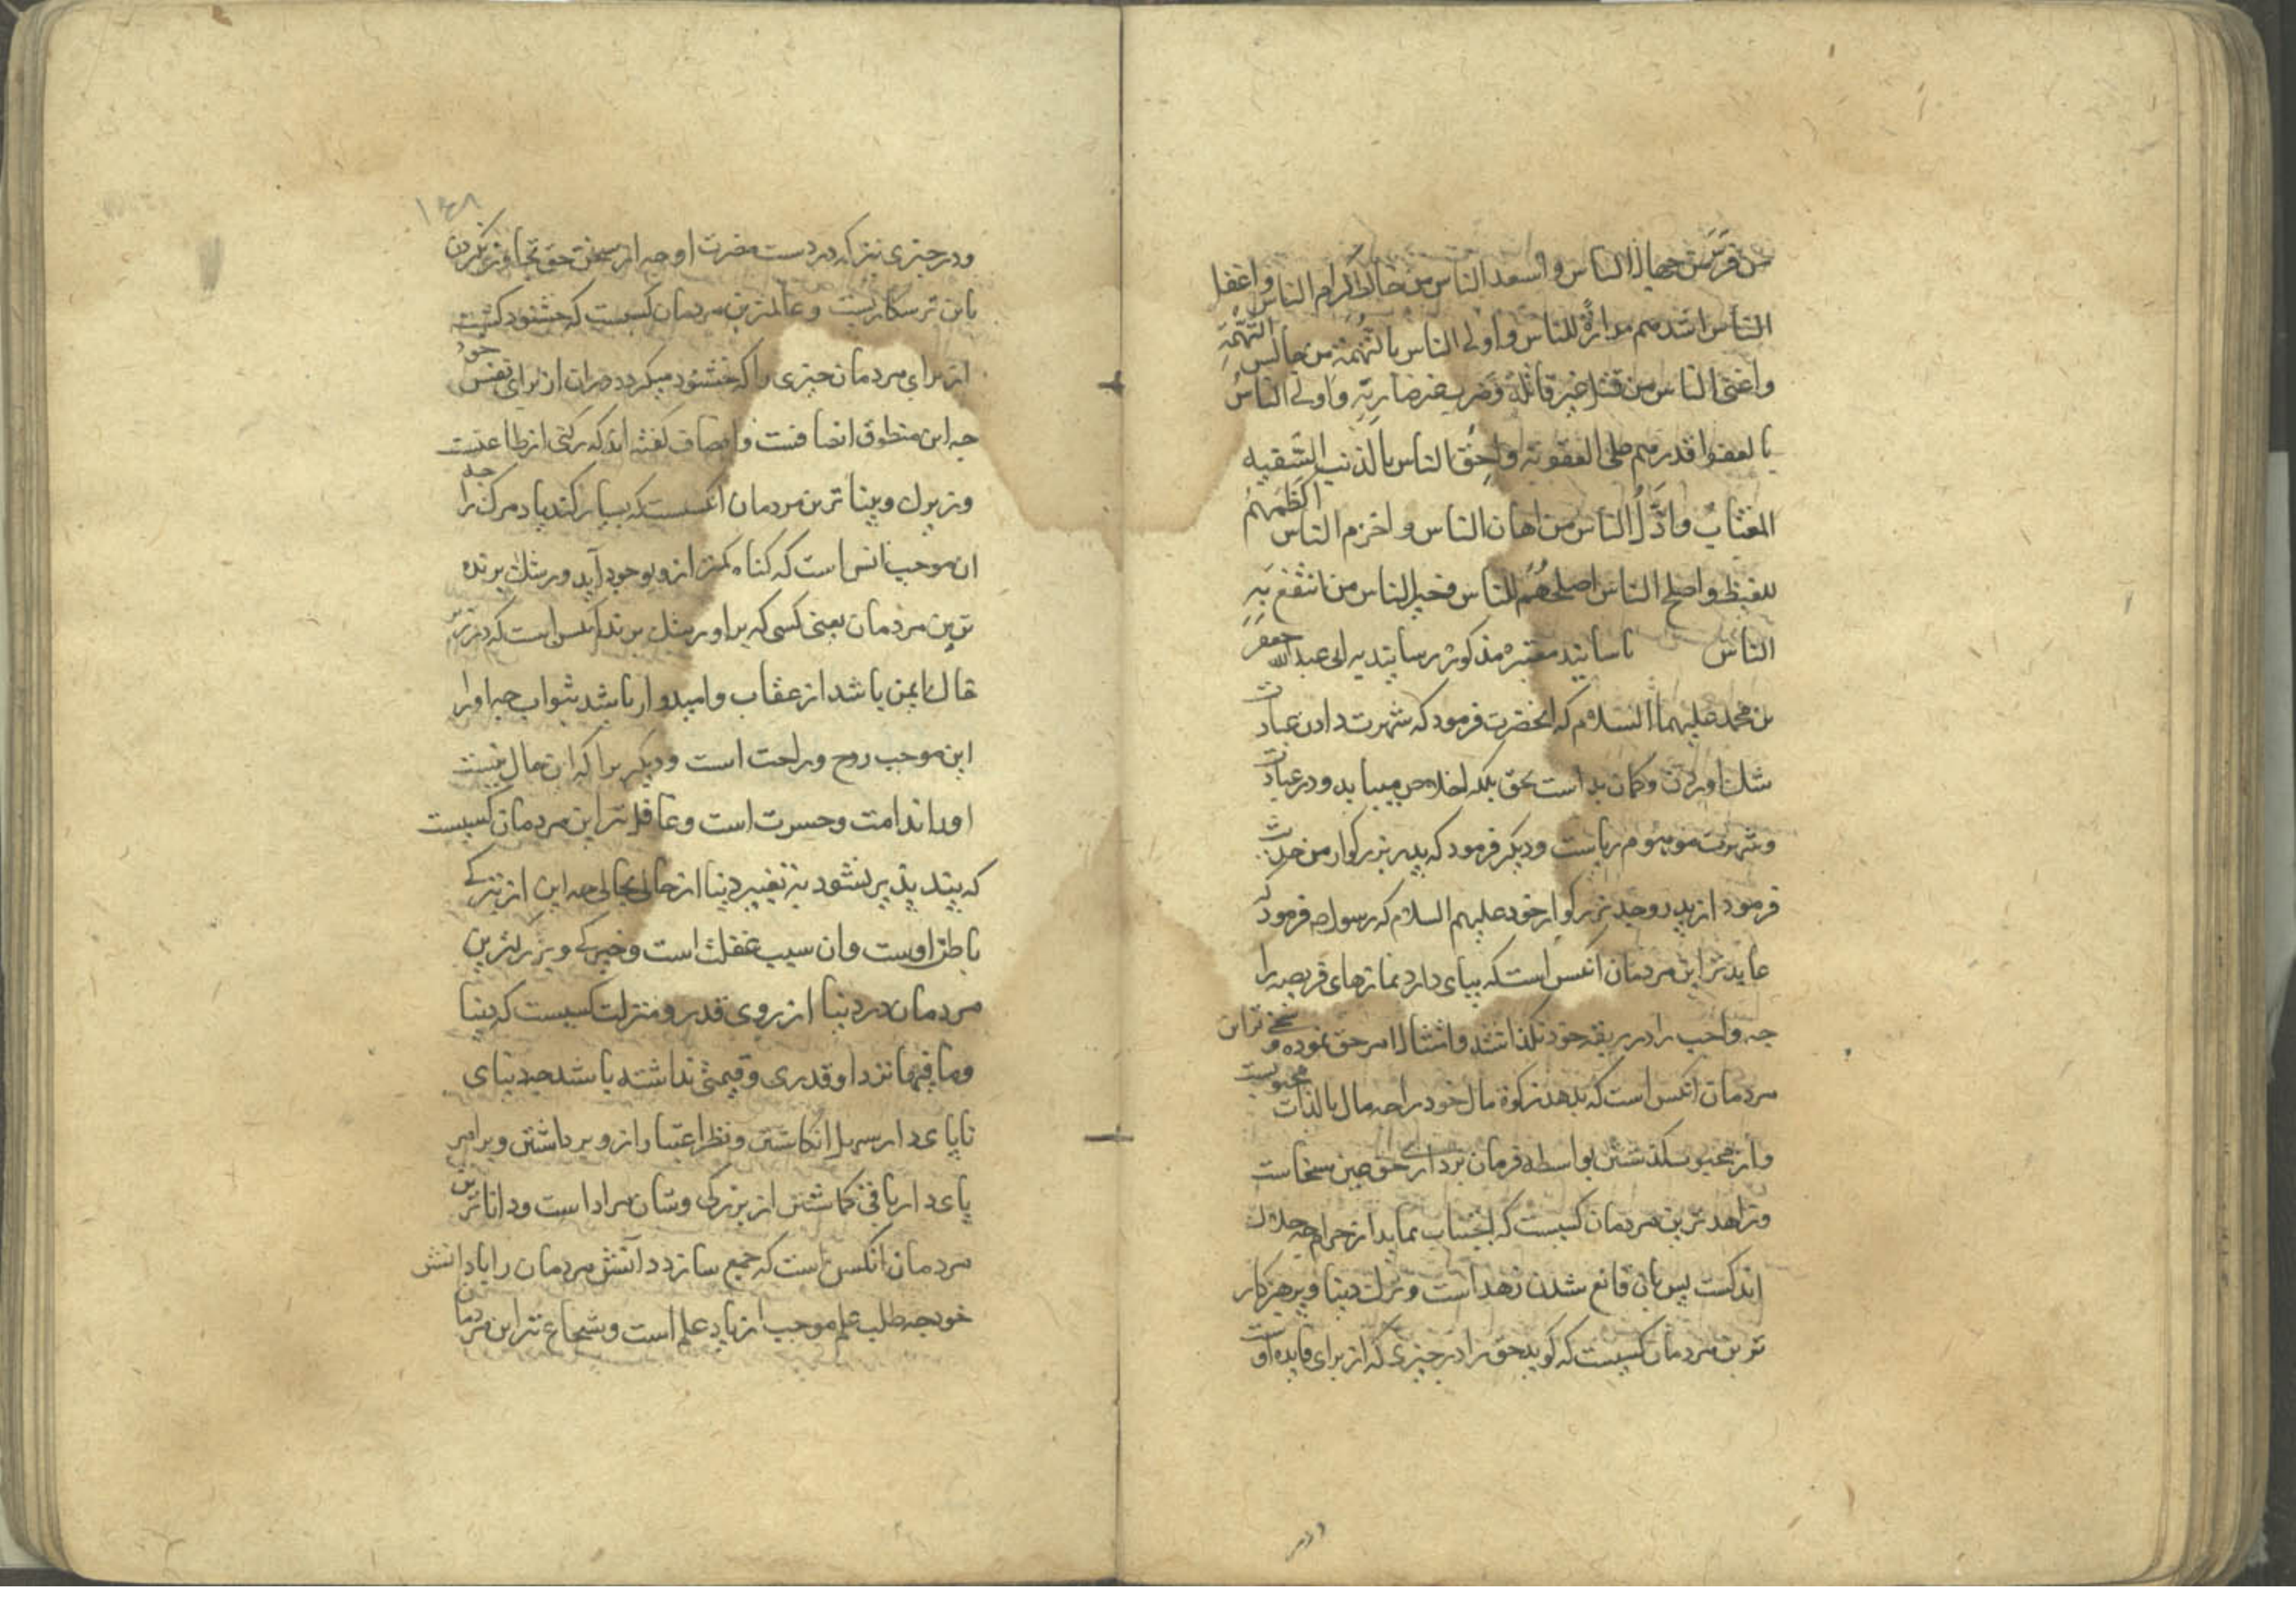 من فر من جهال الناس واسعد الناس من خالط کرام الناس واعقل
الناس اشدهم مداراة للناس واولی الناس بالتهمة من جالس التهمة
واعتی الناس من قتل غیر قاتله وضرب غیر ضاربه واولی الناس
بالعفو اقدرهم علی العقوبة واحق الناس بالذنب السفیه
المغتاب واذل الناس من اهان الناس واحزم الناس اکظمهم
للغیظ واصلح الناس اصلحهم للناس وخیر الناس من انتفع به
الناس باسانید معتبره مذکوره رسانیدیه ابی عبدالله جعفر
بن محمد علیهما السلام که انحضرت فرمود که شهرت دادن عبادت
شک اوردن و کمان بد است بحق بلکه اخلاص میباید ودر عبادت
وشهرت موهوم ریاست ودیکر فرمود که پدر بزرکوار من حدیث
فرمود از پدر وجد بزرکوار خود علیهم السلام که رسول ص فرمود که
عابد تراین مردمان انکس است که بپای دارد نمازهای فریضه را
چه واجب را در ربقه خود نکذاشته وامتثال امر حق نموده و سخی تراین
مردمان انکس است که بدهد زکوة مال خود را چه مال بالذات محبوبست
واز محبوب کذشتن بواسطه فرمان برداری حق عین سخاست
وزاهد ترین مردمان کسیست که اجتناب نماید از حرام چه حلال
اندکست پس بان قانع شدن زهد است وترک دنیا وپرهیزکار
ترین مردمان کسیست که کوید حق را در چیزی که از برای فایده اوست
ودر
۱۴۸
ودر چیزی نیز که در دست مضرت او چه از سخن حق تجاوز نکردن
باین ترسکاریست وعالمترین مردمان کسیست که خشنود کشته
از برای مردمان چیزی را که خشنود میکردد مران از برای نفس خود
چه این منطوق انصافست وانصاف کفته اند که رکنی از طاعتست
وزیرک وبینا ترین مردمان انکسست که بسیار کند یاد مرک را چه
ان موجب انس است که کناه کمتر ازو بوجود آید ورشک برنده
ترین مردمان یعنی کسی که بر او رشک برند انکس است که در زیر
خاک ایمن باشد از عقاب وامیدوار باشد بثواب چه اورا
این موجب روح وراحت است ودیکر برا که این حال نیست
اورا ندامت وحسرت است وغافل تراین مردمان کسیست
که پند پذیر نشود به تغییر دنیا از حالی بحالی چه این از تیرکی
باطن اوست وان سبب غفلت است وخیرکی وبزرکترین
مردمان در دنیا از روی قدر ومنزلت کسیست که دنیا
ومافیها نزد او قدری وقیمتی نداشته باشد چه دنیای
ناپای دار سهل انکاشتن ونظر اعتبار ازو برداشتن وبرامر
پای دار باقی کماشتن از بزرکی وشان مراد است ودانا ترین
مردمان انکس است که جمع سازد دانش مردمان را با دانش
خود چه طلب علم موجب ازیاد علم است وشجاع تراین مردمان